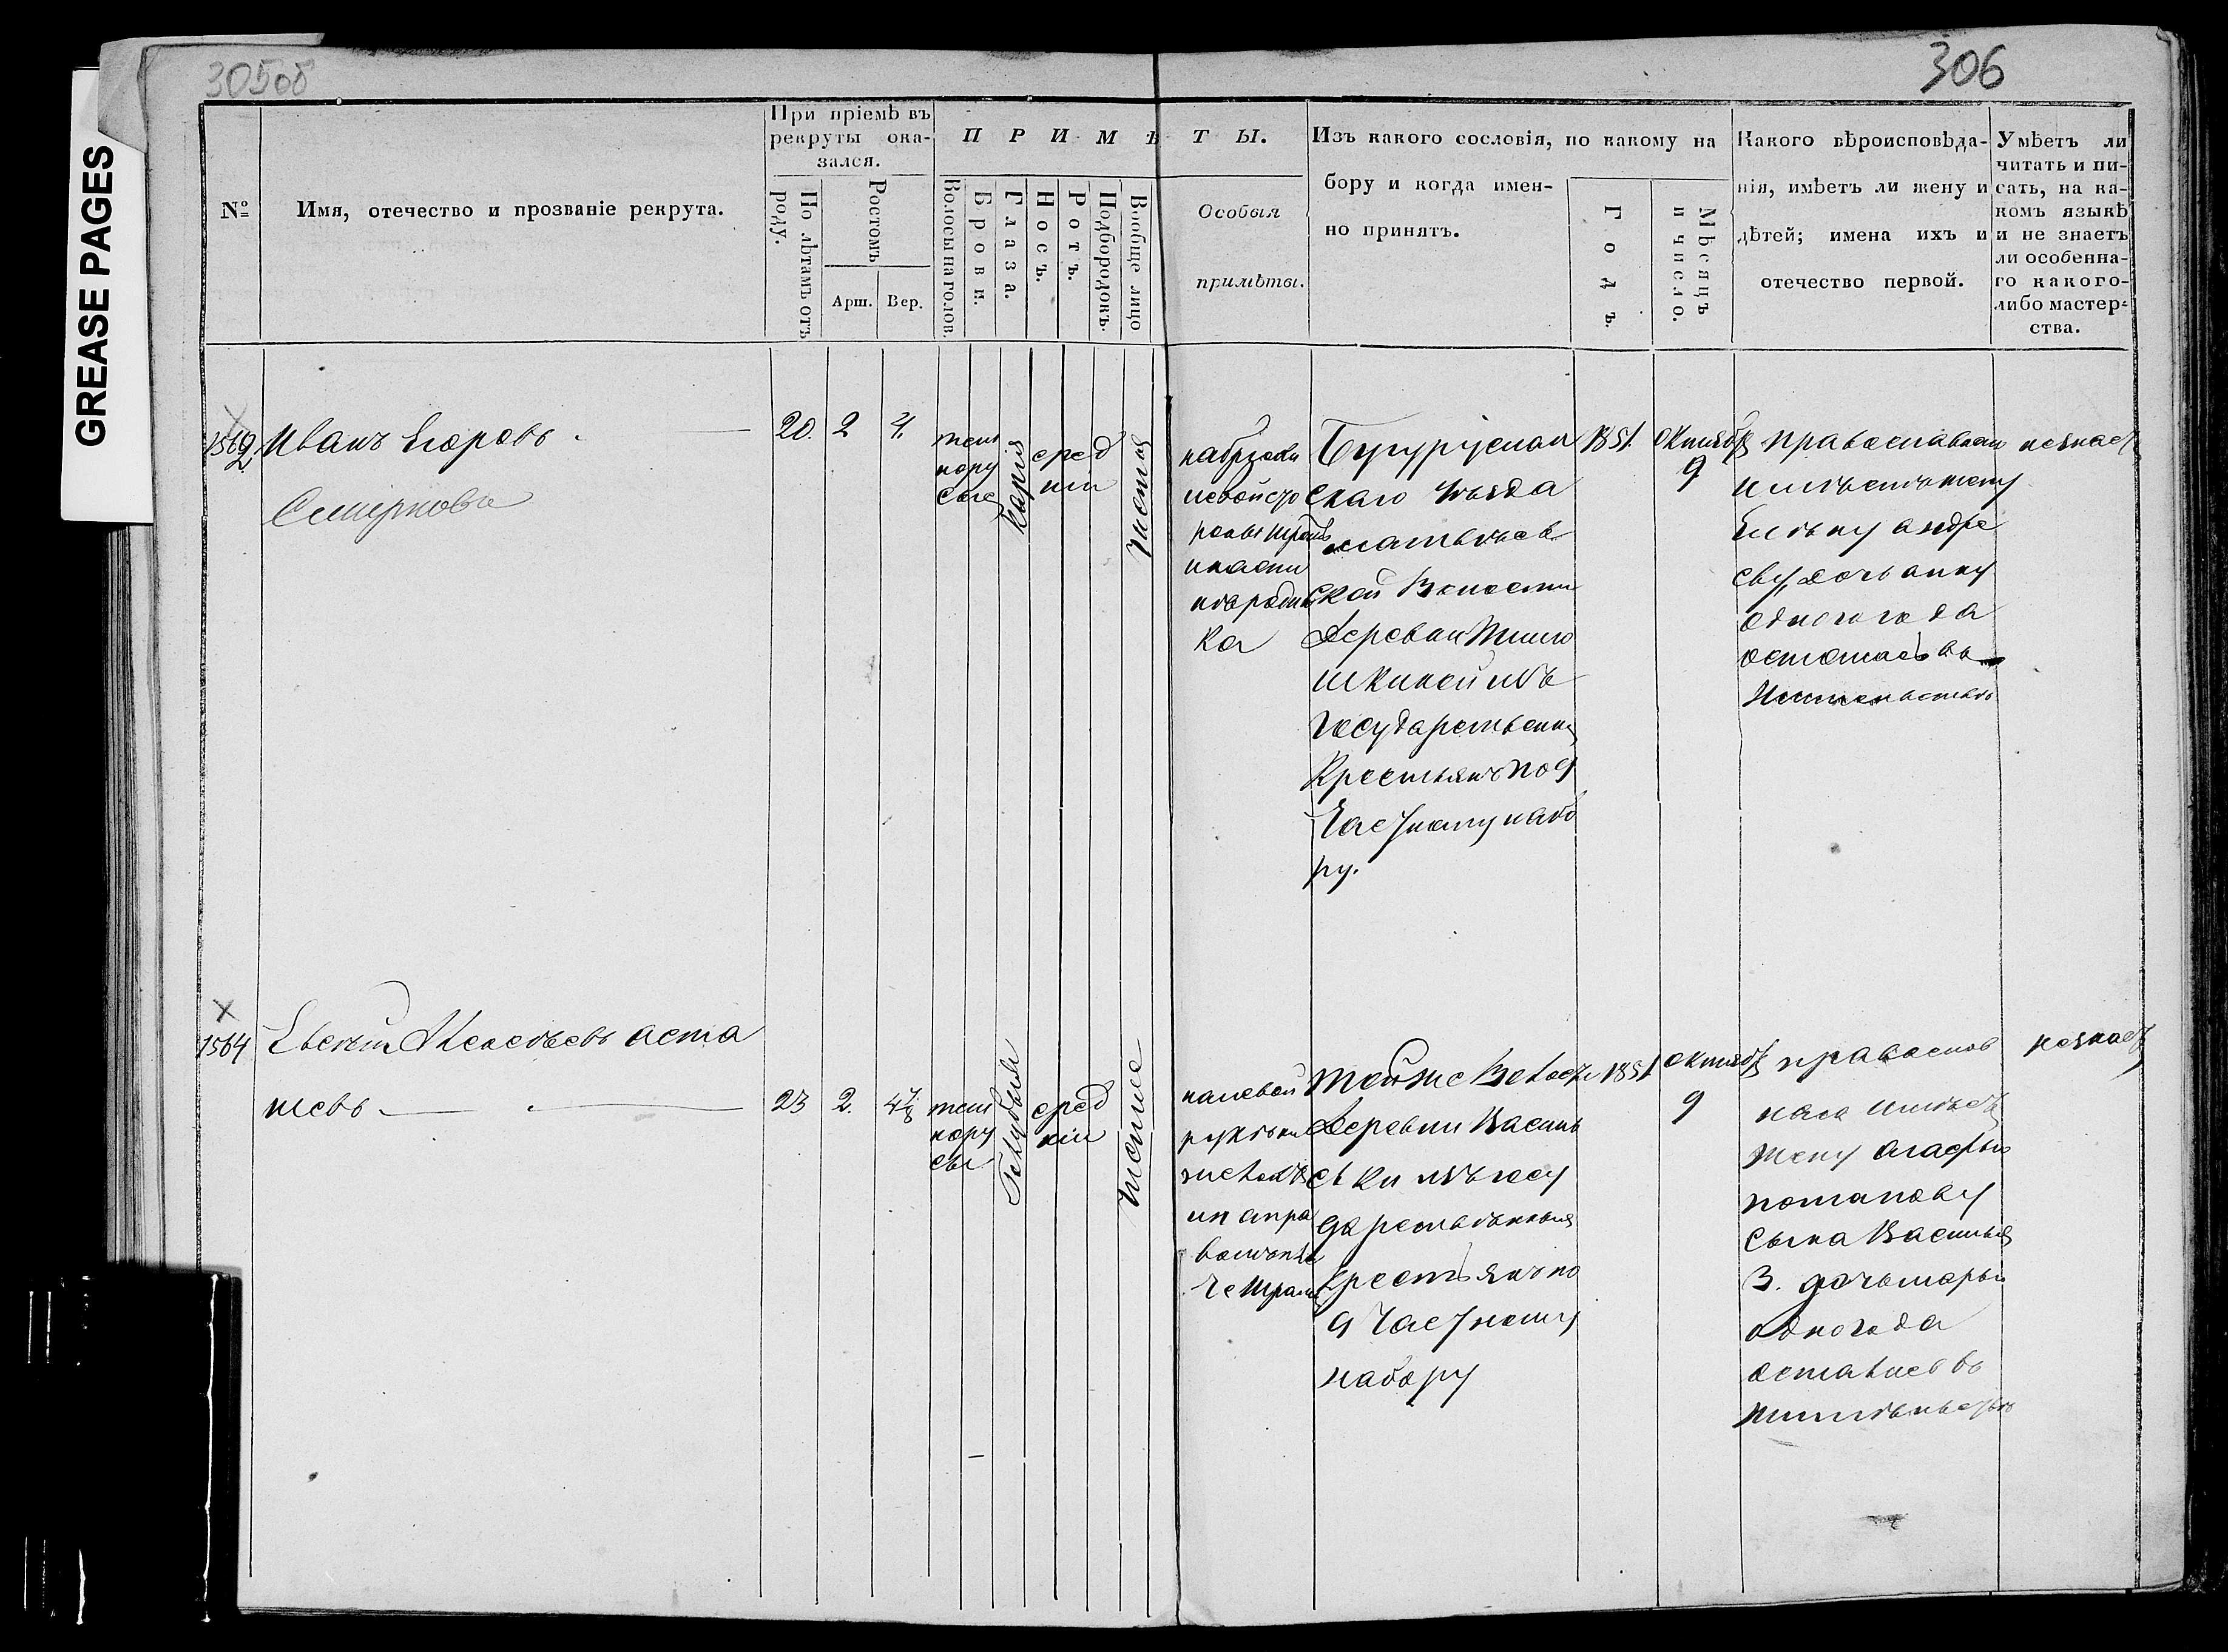 GREASE PAGES
305об
306
№
Имя, отечество и прозваніе рекрута.
При пріемѣ въ
рекруты ока-
зался.
По лѣтамъ отъ
роду.
Ростомъ
Арш.
Вер.
ПРИМѢТЫ.
Волосы на голов.
Брови.
Глаза.
Носъ.
Ротъ.
Подбородокъ.
Вообще лицо
Особыя
примѣты.
Изъ какого сословія, по какому на
бору и когда имен-
но принятъ.
Годъ.
Мѣсяцъ
и число.
Какого вѣроисповѣда-
нія, имѣетъ ли жену и
дѣтей; имена ихъ и
отечество первой.
Умѣетъ ли
читать и пи-
сать, на ка-
комъ языкѣ
и не знаетъ
ли особенна-
го какого-
либо мастер-
ства.
Иванъ Егоровъ
20. 2 4.
темно
русые
карія
сред
ніи
чистое
ка
Бугуруслан
скаго уѣзда
ской Волости
деревни
изъ
Государственны
Крестьянъ по 9
Частному набо
ру.
1851
Октября
9
православнаго
имѣетъ жену
андре
еву, дочь анну
одного года
осталась въ
незнаетъ
1564
аста
шевъ
23 2. 4⅞
темно
русы
Голубыя
сред
ніи
на левой
рукѣ
на пра
Тойже Волости
деревни Василь
евки изъ госу
дарственныхъ
Крестьянъ по
9 Частному
набору
1851
октября
9
православ
наго имѣетъ
жену агафью
потапову
сына Василья
3. дочь марью
одного года
остались въ
незнаетъ